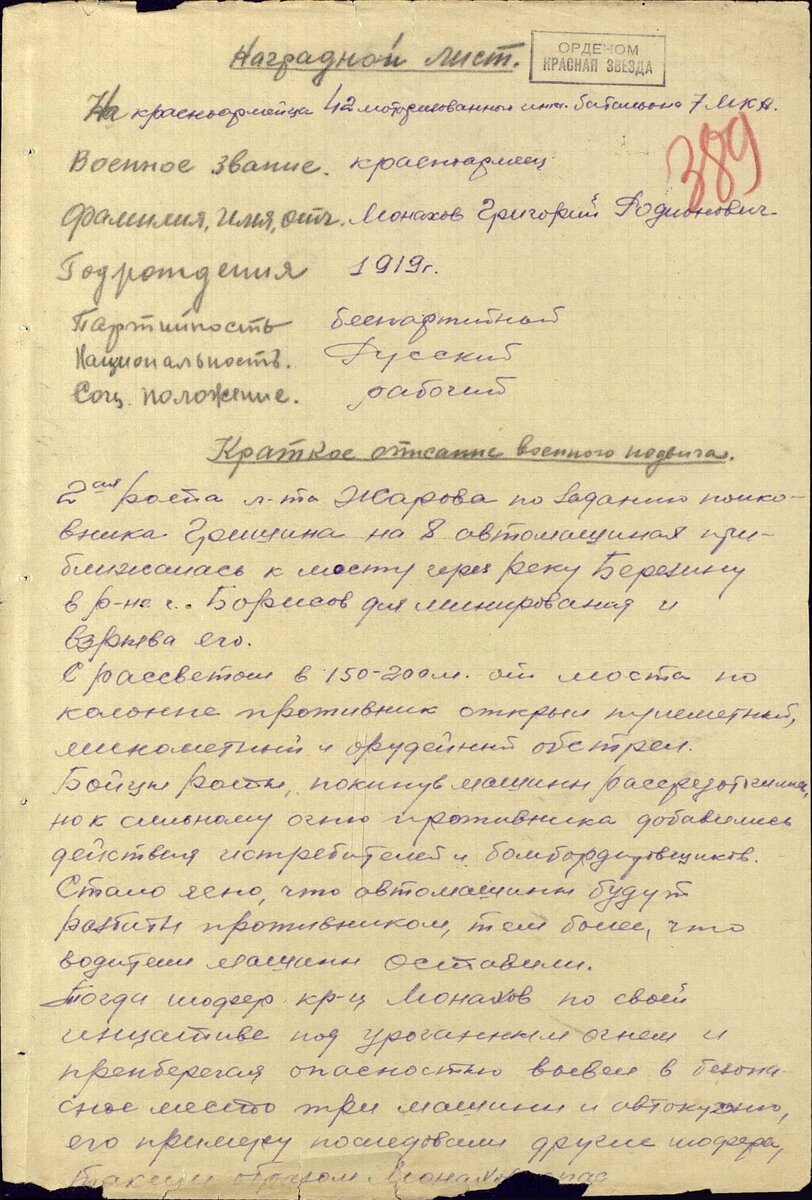 Наградной лист.
ОРДЕНОМ
КРАСНАЯ ЗВЕЗДА
На красноармейца 42 моторизованный инж. батальона 7 МКА.
389
Военное звание. красноармеец
Фамилия, имя, отч. Монахов Григорий Родионович
Год рождения 1919 г.
Партийность беспартийный
Национальность. Русский
Соц. положение. рабочий
Краткое описание военного подвига.
2ая рота л-та Жарова по заданию полко-
вника Грищина на 8 автомашинах при-
ближалась к мосту через реку Березину
в р-не г. Борисов для минирования и
взрыва его.
С рассветом в 150-200 м. от моста по
колонне противник открыл пулеметный,
минометный и орудейный обстрел.
Бойцы роты, покинув машины рассредоточились,
но к сильному огню противника добавились
действия истребителей и бомбордировщиков.
Стало ясно, что автомашины будут
разбиты противником, тем более, что
водители машины оставили.
Тогда шофер кр-ц Монахов по своей
инциативе под ураганным огнем и
пренберегая опасностью вывел в безопа-
сное место три машины и автокухню,
его примеру последовали другие шофера,
таким образом Монахов спас